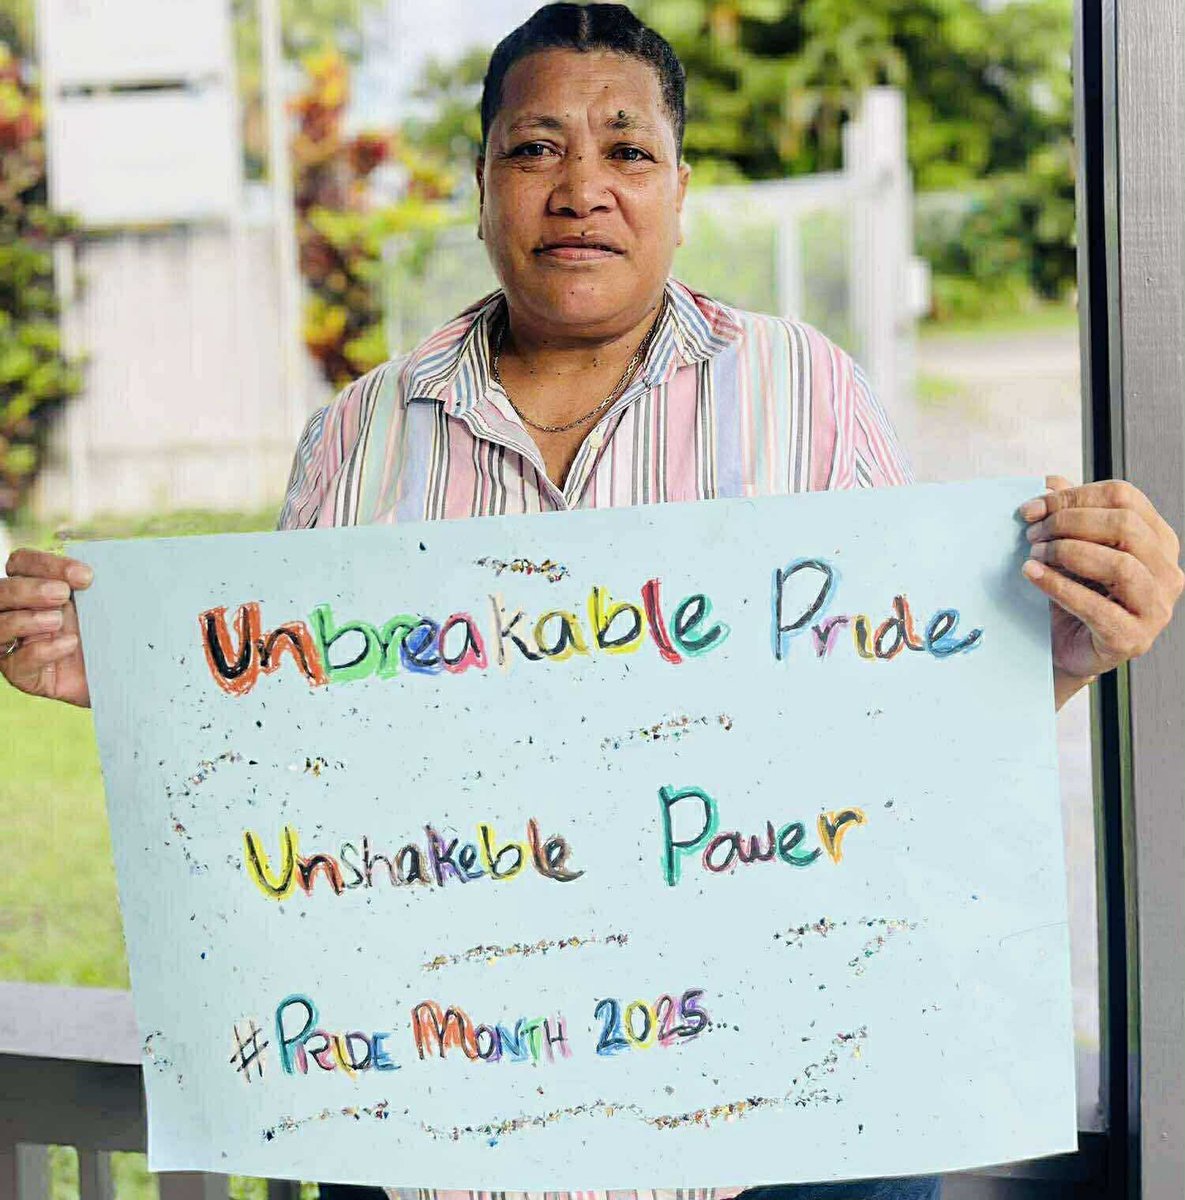 Unbreakable Pride
Unshakeble Power
#PRIDE MONTH 2025...